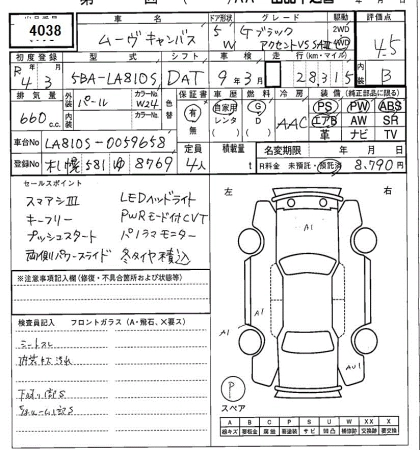 4038
車名
ムーヴキャンバス
ドア形状
5
W
グレード
Gブラック
アクセントVS SAⅢ
駆動
2WD
4WD
評価点
4.5
初度登録
R 4年 3月
型式
5BA-LA810S
シフト
DAT
車検
9年3月
走行(km・マイル)
28,315
内装
B
排気量
660 c.c.
外装
パール
カラーNo.
W24
内装
カラーNo.
色替
有
無
車歴
自家用
レンタ
燃料
G
D
冷房
AAC
装備(純正部品に限る)
PS PW ABS
エアB AW SR
革 ナビ TV
車台No.
LA810S-0059658
登録No.
札幌 581 ゆ 8769
定員
4人
積載量
t
名変期限
年 月 日
R料金 未預託・預託済
8,790円
セールスポイント
スマアシⅢ LEDヘッドライト
キーフリー PWRモード付CVT
プッシュスタート パノラマモニター
両側パワースライド 冬タイヤ積込
※注意事項記入欄(修復・不具合箇所および状態)
検査員記入 フロントガラス(A・飛石、X要ス)
シートスレ
左 右
A1
A1
A1
AU1
P
スペア
A B C P S U W X XX
線キズ 要板金 腐蝕 要塗装 サビ 凹凸 補修跡 交換跡 要交換